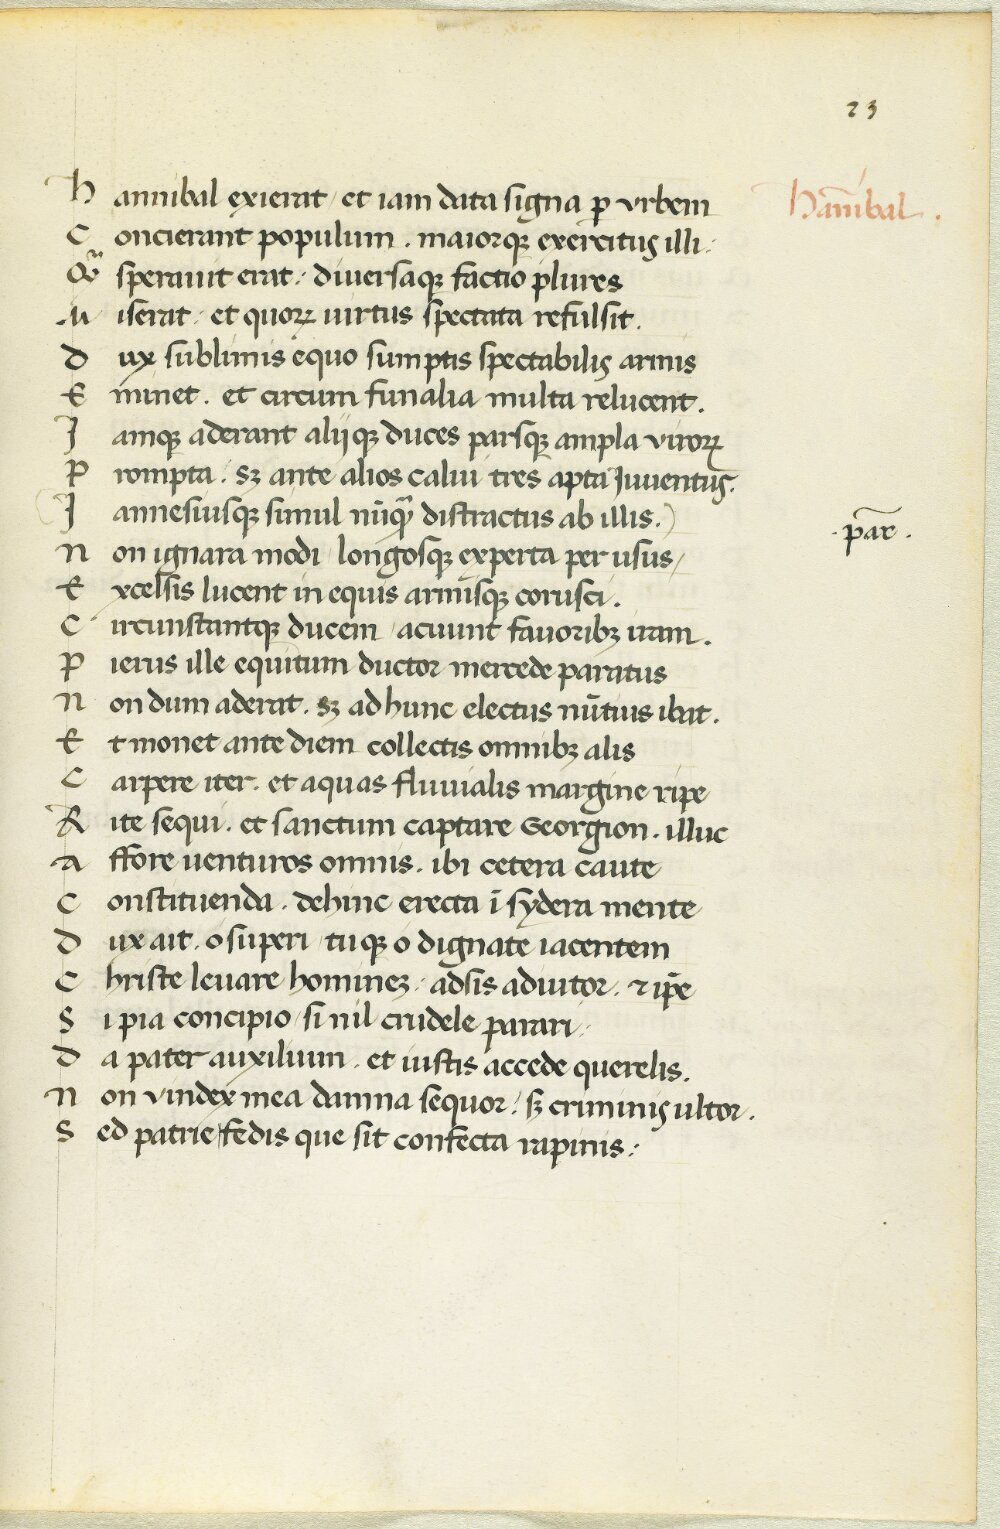 23
Hannibal exierat / et iam data signa ꝑ vrbem
Hãnibal .
Concierant populum . maiorqꝫ exercitus illi .
Qͣ sperauit erat : diuersaqꝫ factio plures
Miserat / et quoꝝ uirtus spectata refulsit .
Dux sublimis equo sumptis spectabilis armis
Eminet . et circum funalia multa relucent .
Jamqꝫ aderant alijqꝫ duces parsqꝫ ampla viroꝝ
Prompta / sꝫ ante alios calui tres apta Juuentus .
(Jannesiusqꝫ simul nũqͣ distractus ab illis .)
. par̃ .
Non ignara modi / longosqꝫ experta per usus /
Excelsis lucent in equis armisqꝫ corusci .
Circunstantqꝫ ducem / acuunt fauoribꝫ iram .
Pierus ille equitum ductor mercede paratus
Non dum aderat . sꝫ ad hunc electus nũtius ibat .
Et monet ante diem collectis omnibꝫ alis
Carpere iter . et aquas fluuialis margine ripe
Rite sequi . et sanctum captare Georgion . illuc
Affore uenturos omnis . ibi cetera caute
Constituenda . dehinc erecta ĩ sydera mente
Dux ait . o superi / tuqꝫ o dignate iacentem
Christe leuare hominez / adsis adiutor . ⁊ ip̃e
Si pia concipio / si nil crudele parari :
Da pater auxilium . et iustis accede querelis .
Non vindex mea damna sequor / sꝫ criminis ultor .
Sed patrie fedis que sit confecta rapinis :